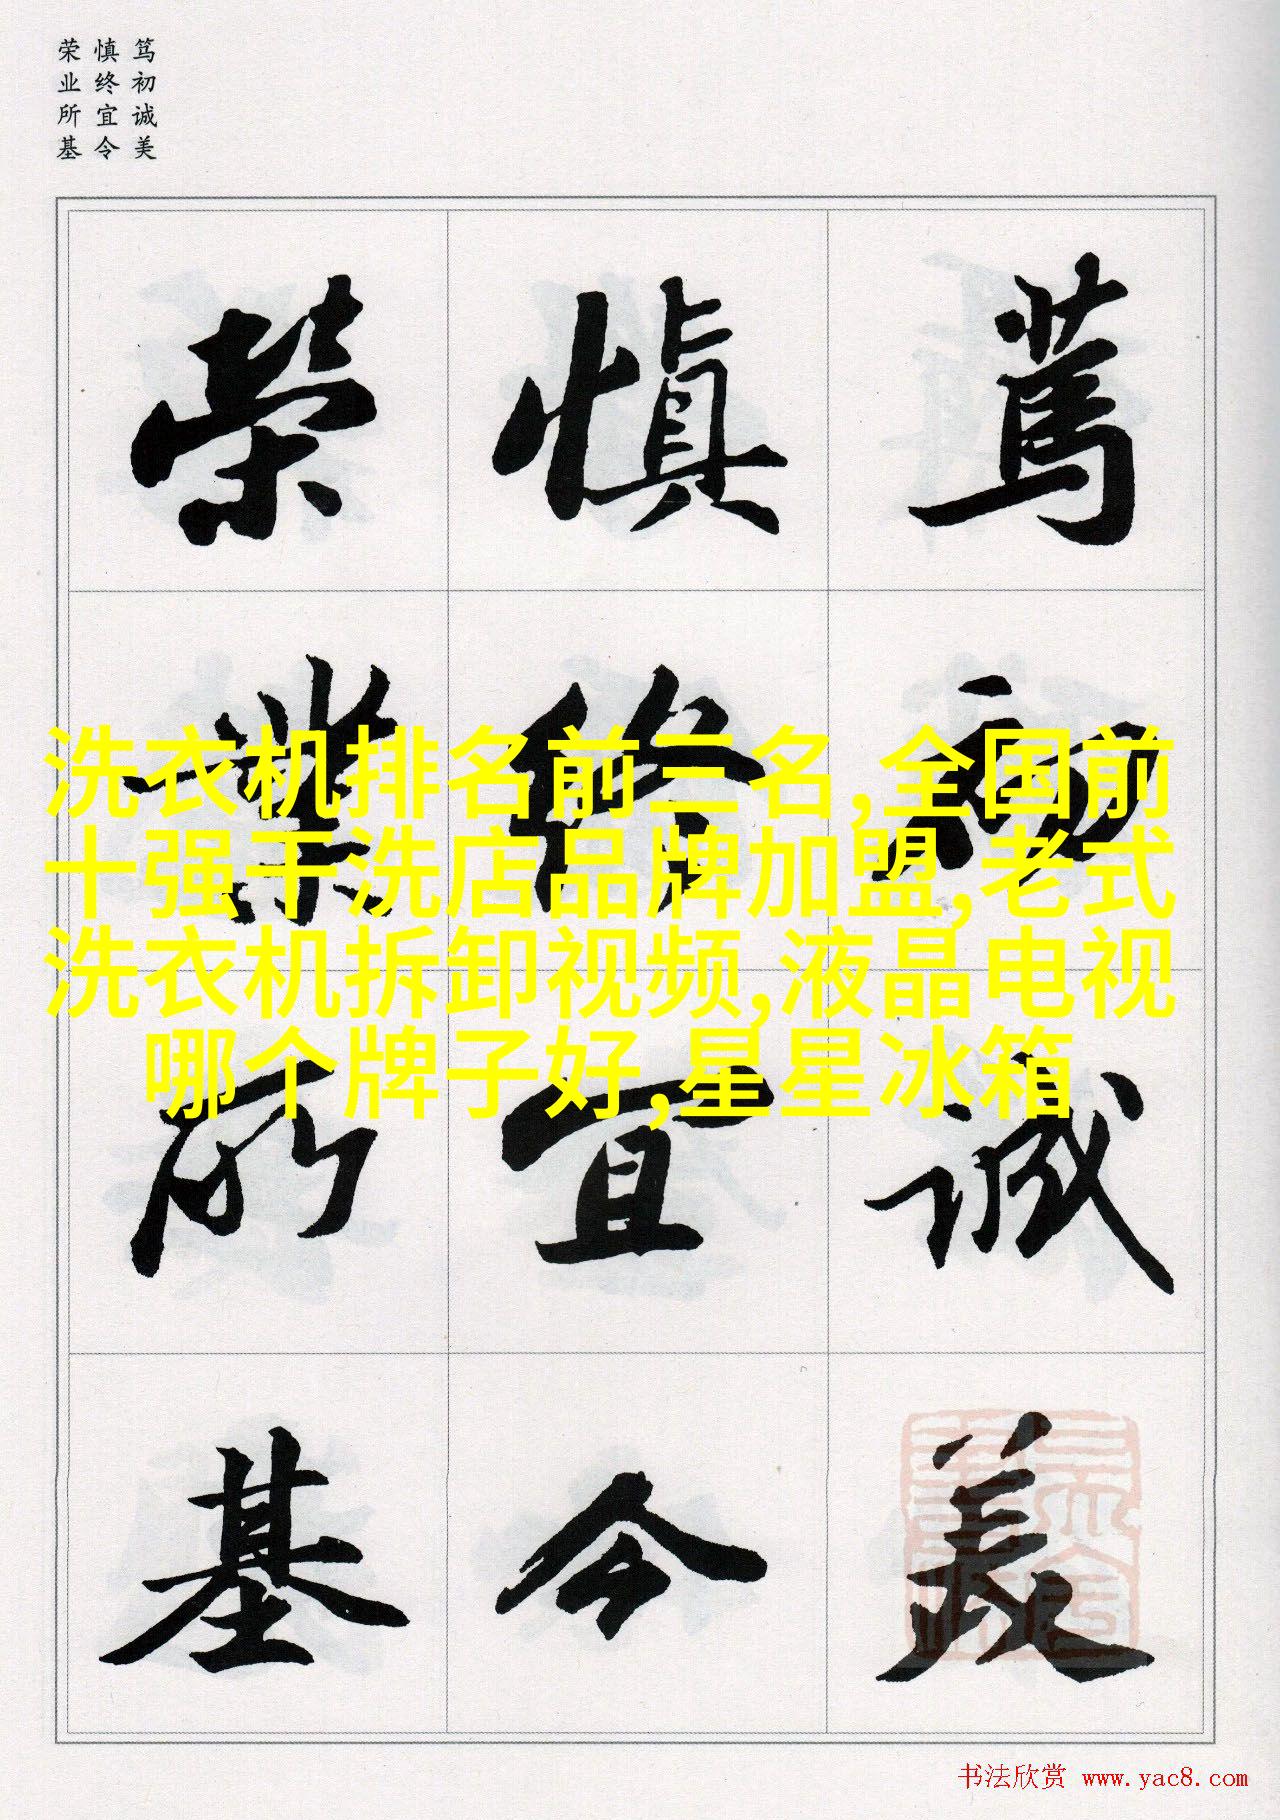 笃初诚美
慎终宜令
荣业所基
篤初誠美
慎終宜令
榮業所基
洗衣机排名前三名,全国前
十强干洗店品牌加盟,老式
洗衣机拆卸视频,液晶电视
哪个牌子好,星星冰箱
书法欣赏 www.yac8.com